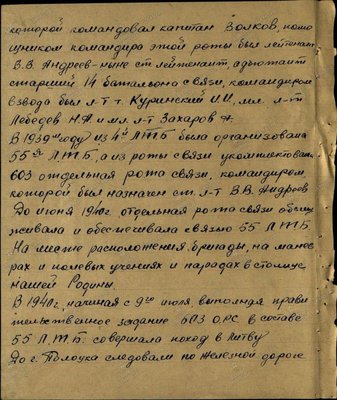 которой командовал капитан Волков, помо
щником командира этой роты был лейтенант
В.В. Андреев - ныне ст. лейтенант, адъютант
старший 14 батальона связи, командиром
взвода был л-т т. Куринский И.И., мл. л-т
Лебедев Н.А и мл л-т Захаров А.
В 1939 году из 4й ЛТБ была организована
55я Л.Т.Б, а из роты связи укомплектована
603 отдельная рота связи, командиром
которой был назначен ст. л-т В.В. Андреев
До июня 1940г. отдельная рота связи обслу
живала и обеспечивала связью 55 Л Т Б.
На месте расположения бригады, на манев
рах и полевых учениях и парадах в столице
нашей Родины.
В 1940г, начиная с 9го июля, выполняя прави
тельственное задание 603 ОРС в составе
55 Л.Т.Б. совершала поход в Литву
До г. Полоцка следовали по железной дороге